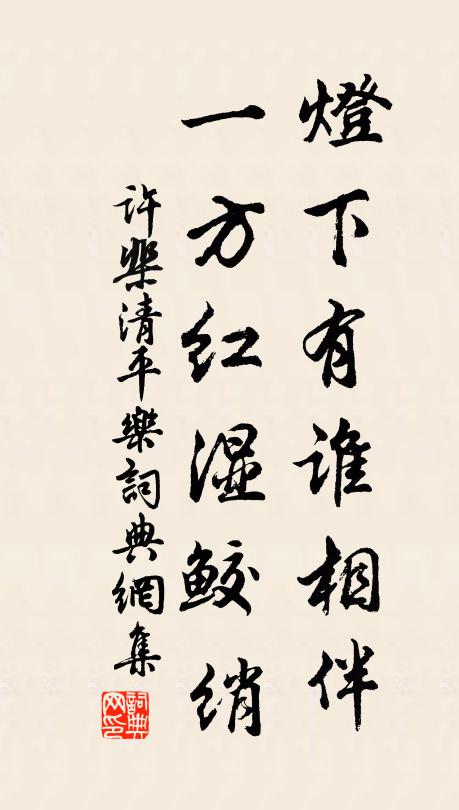 燈下有誰相伴
一方紅濕鮫綃
許棐清平樂詞典網集
詞典網印